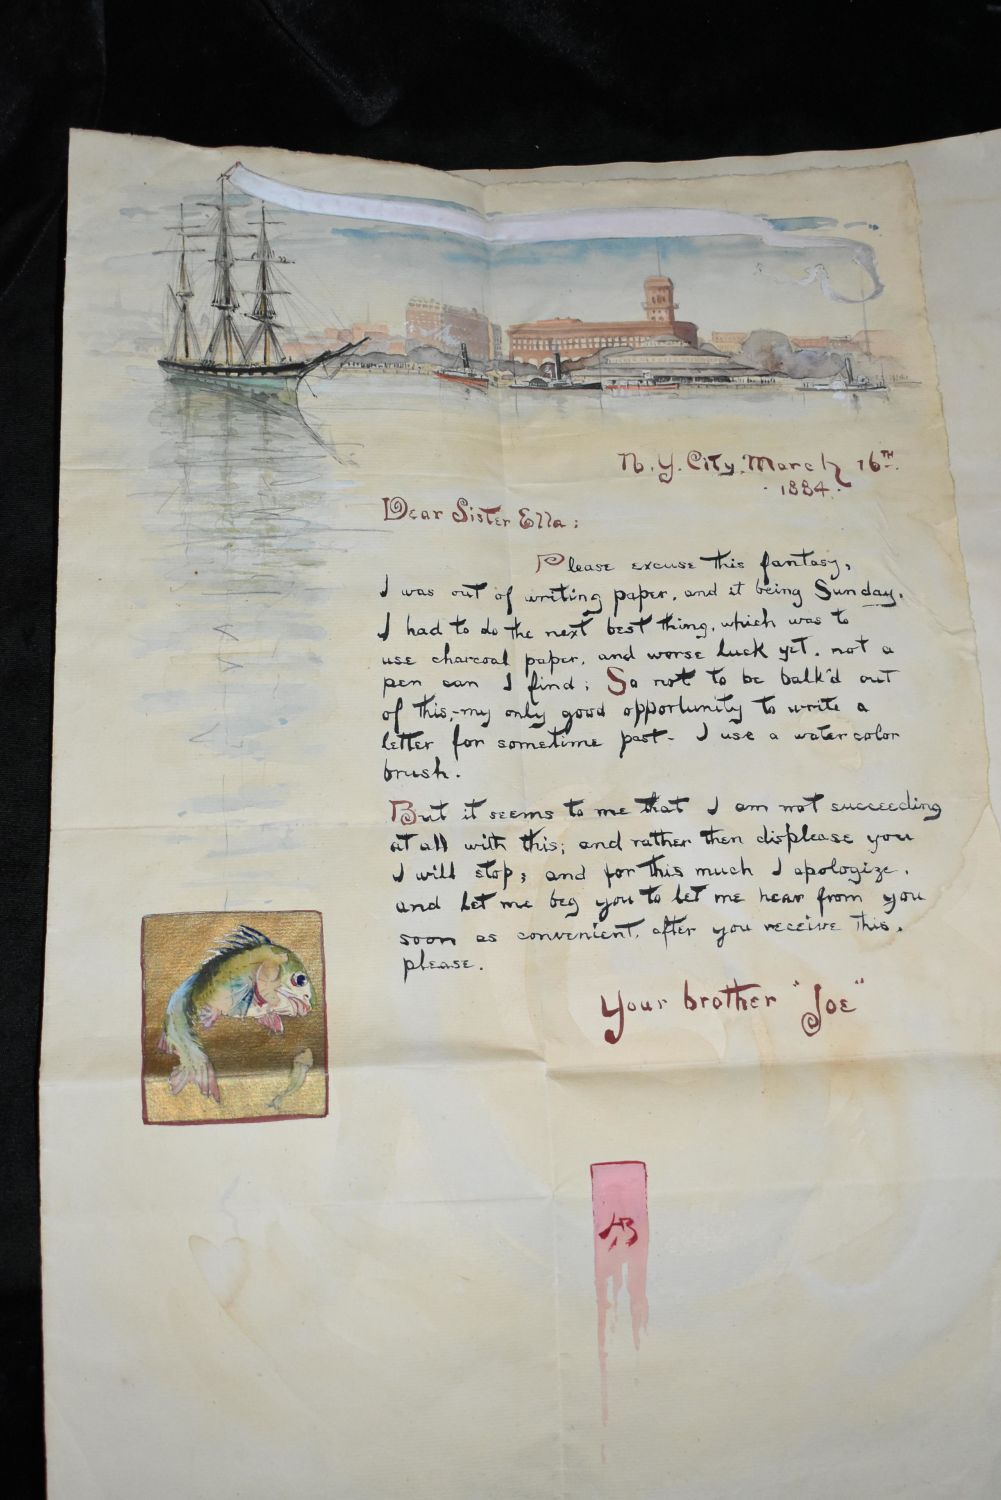 N.Y. City. March 16TH
1884.
Dear Sister Ella:
Please excuse this fantasy,
I was out of writing paper, and it being Sunday,
I had to do the next best thing, which was to
use charcoal paper, and worse luck yet, not a
pen can I find; So not to be balk'd out
of this,-my only good opportunity to write a
letter for sometime past- I use a water color
brush.
But it seems to me that I am not succeeding
at all with this; and rather then displease you
I will stop; and for this much I apologize,
and let me beg you to let me hear from you
soon as convenient, after you receive this,
please.
Your brother "Joe"